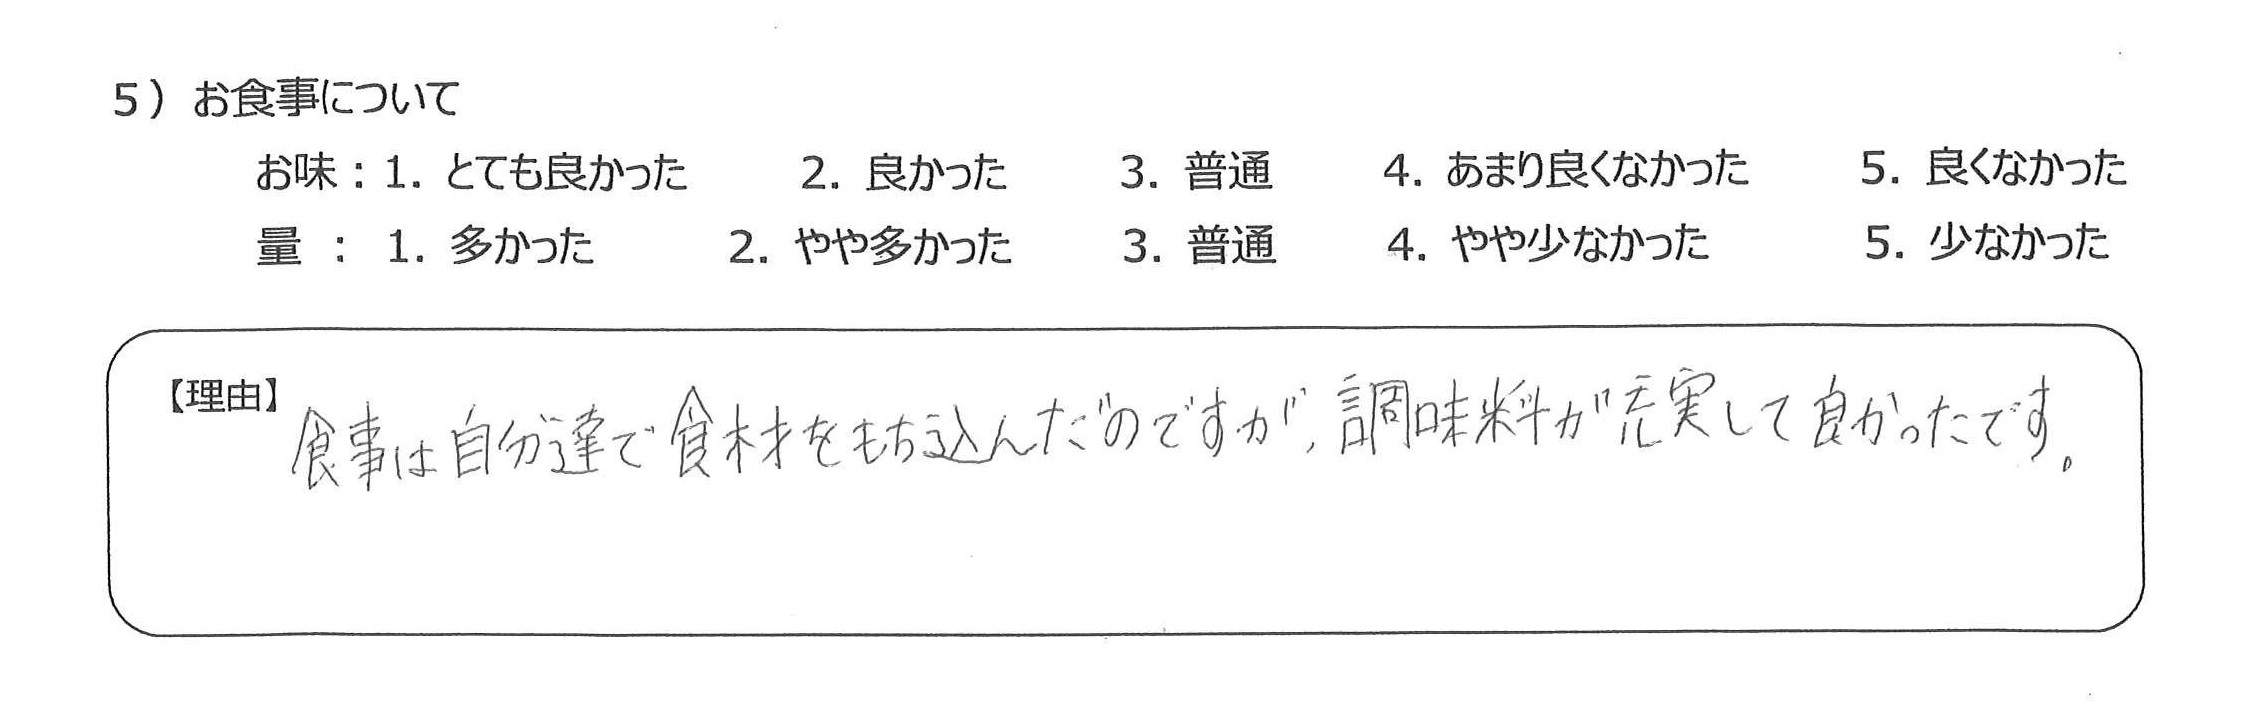 5）お食事について
お味：1. とても良かった 2. 良かった 3. 普通 4. あまり良くなかった 5. 良くなかった
量 ： 1. 多かった 2. やや多かった 3. 普通 4. やや少なかった 5. 少なかった
【理由】
食事は自分達で食材をもち込んだのですが、調味料が充実して良かったです。